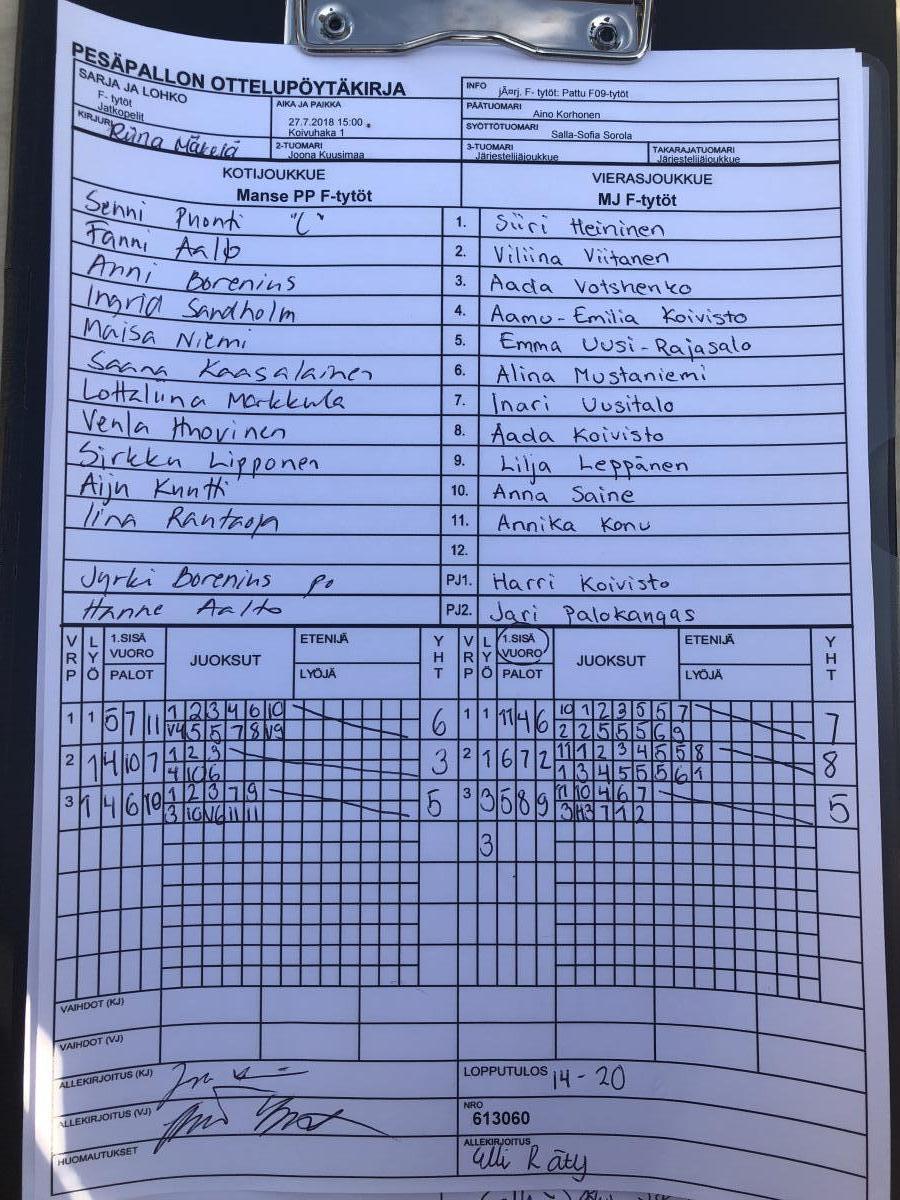 PESÄPALLON OTTELUPÖYTÄKIRJA
SARJA JA LOHKO
F- tytöt
Jatkopelit
KIRJURI
Riina Mäkelä
AIKA JA PAIKKA
27.7.2018 15:00
Koivuhaka 1
2-TUOMARI
Joona Kuusimaa
INFO
jÃ¤rj. F- tytöt: Pattu F09-tytöt
PÄÄTUOMARI
Aino Korhonen
SYÖTTÖTUOMARI
Salla-Sofia Sorola
3-TUOMARI
Järjestelijäjoukkue
TAKARAJATUOMARI
Järjestelijäjoukkue
KOTIJOUKKUE
Manse PP F-tytöt
VIERASJOUKKUE
MJ F-tytöt
Senni Puonti "C" 1. Siiri Heininen
Fanni Aalto 2. Viliina Viitanen
Anni Borenius 3. Aada Votshenko
Ingrid Sandholm 4. Aamu-Emilia Koivisto
Maisa Niemi 5. Emma Uusi-Rajasalo
Saana Kaasalainen 6. Alina Mustaniemi
Lottaliina Markkula 7. Inari Uusitalo
Venla Huovinen 8. Aada Koivisto
Sirkku Lipponen 9. Lilja Leppänen
Aiju Kuutti 10. Anna Saine
Iina Rantaoja 11. Annika Konu
12.
Jyrki Borenius PJ1. Harri Koivisto
Hanne Aalto PJ2. Jari Palokangas
VRP LYÖ 1.SISÄ VUORO PALOT JUOKSUT ETENIJÄ LYÖJÄ YHT VRP LYÖ 1.SISÄ VUORO PALOT JUOKSUT ETENIJÄ LYÖJÄ YHT
1 1 5 7 11 1 2 3 4 6 10 6 1 1 11 4 6 10 1 2 3 5 5 7 7
V4 5 5 7 8 V9 2 2 5 5 5 6 9
2 1 4 10 7 1 2 3 3 2 1 6 7 2 11 1 2 3 4 5 5 8 8
4 10 6 1 3 4 5 5 5 6 1
3 1 4 6 10 1 2 3 7 9 5 3 3 5 8 9 11 10 4 6 7 5
3 10 V6 11 11 3 H3 7 1 2
3
VAIHDOT (KJ)
VAIHDOT (VJ)
ALLEKIRJOITUS (KJ)
LOPPUTULOS 14 - 20
ALLEKIRJOITUS (VJ)
NRO
613060
HUOMAUTUKSET
ALLEKIRJOITUS
Elli Räty